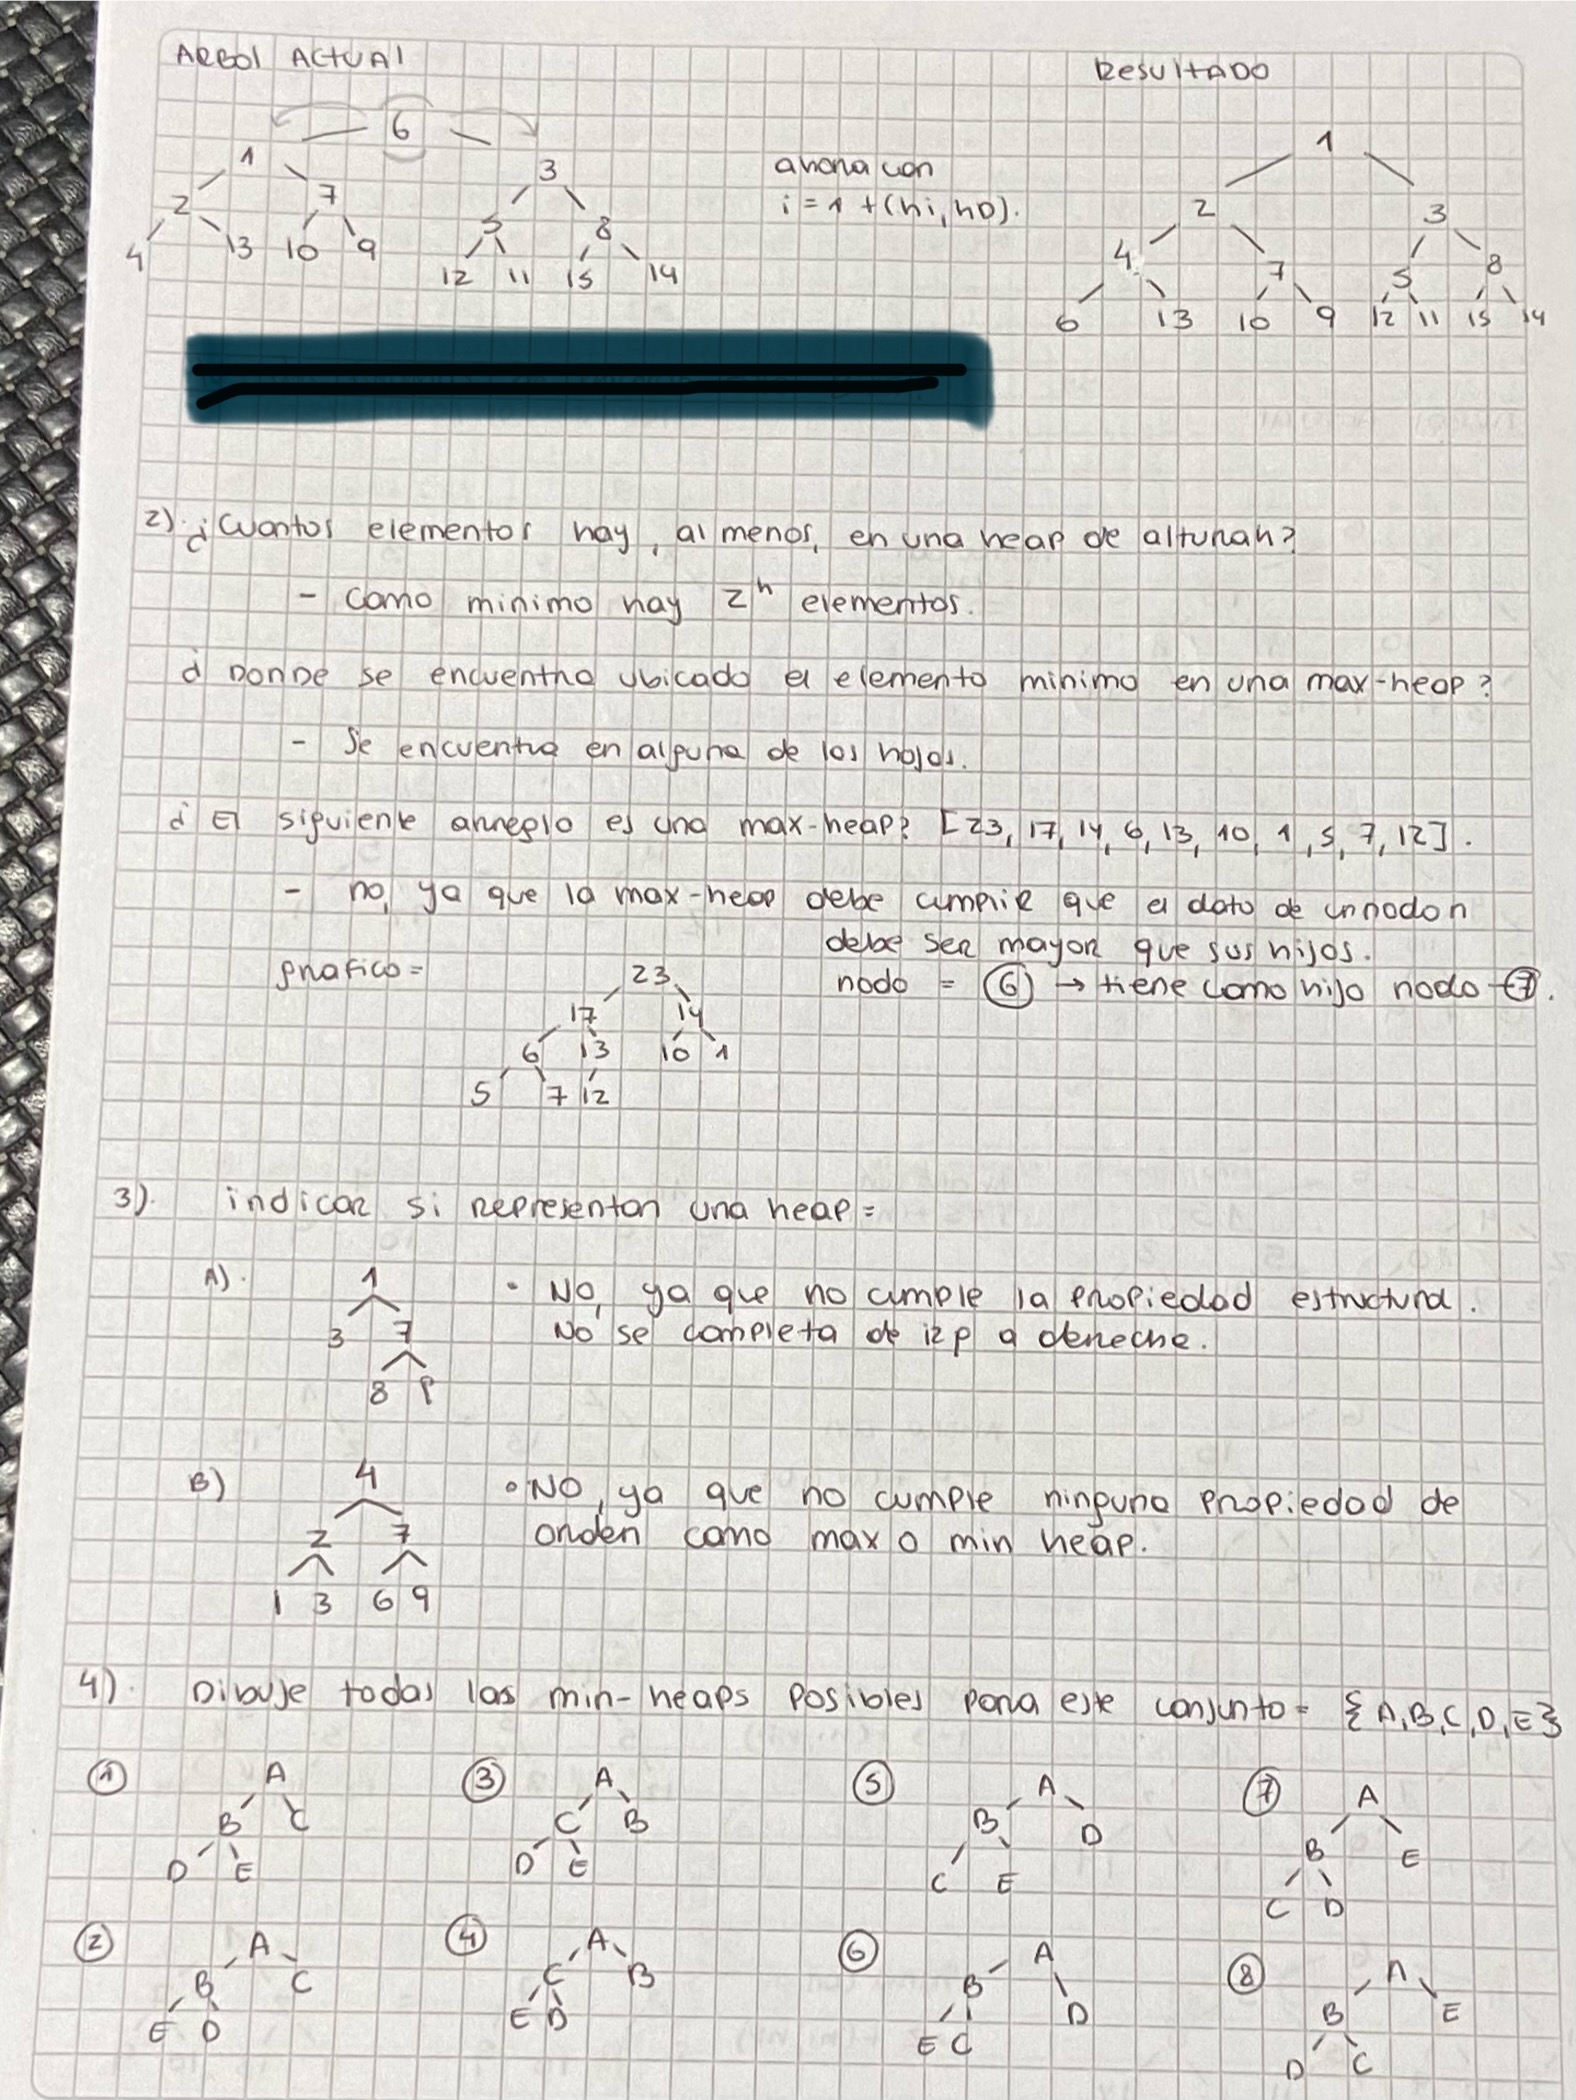 Arbol Actual
Resultado
6
1 3
2 7 5 8
4 13 10 9 12 11 15 14
ahora con
i = 1 + (hi, hD).
1
2 3
4 7 5 8
6 13 10 9 12 11 15 14
2). ¿Cuantos elementos hay, al menos, en una heap de altura h?
- como minimo hay 2^h elementos.
¿ Donde se encuentra ubicado el elemento minimo en una max-heap?
- Se encuentra en alguna de las hojas.
¿ El siguiente arreglo es una max-heap? [23, 17, 14, 6, 13, 10, 1, 5, 7, 12].
- no, ya que la max-heap debe cumplir que el dato de un nodo n
debe ser mayor que sus hijos.
nodo = 6 → tiene como hijo nodo 7.
grafico =
23
17 14
6 13 10 1
5 7 12
3). indicar si representan una heap =
A).
1
3 7
8 9
• No, ya que no cumple la propiedad estructural.
No se completa de izq a derecha.
B)
4
2 7
1 3 6 9
• No, ya que no cumple ninguna propiedad de
orden como max o min heap.
4). Dibuje todas las min-heaps posibles para este conjunto = {A,B,C,D,E}
1
A
B C
D E
3
A
C B
D E
5
A
B D
C E
7
A
B E
C D
2
A
B C
E D
4
A
C B
E D
6
A
B D
E C
8
A
B E
D C